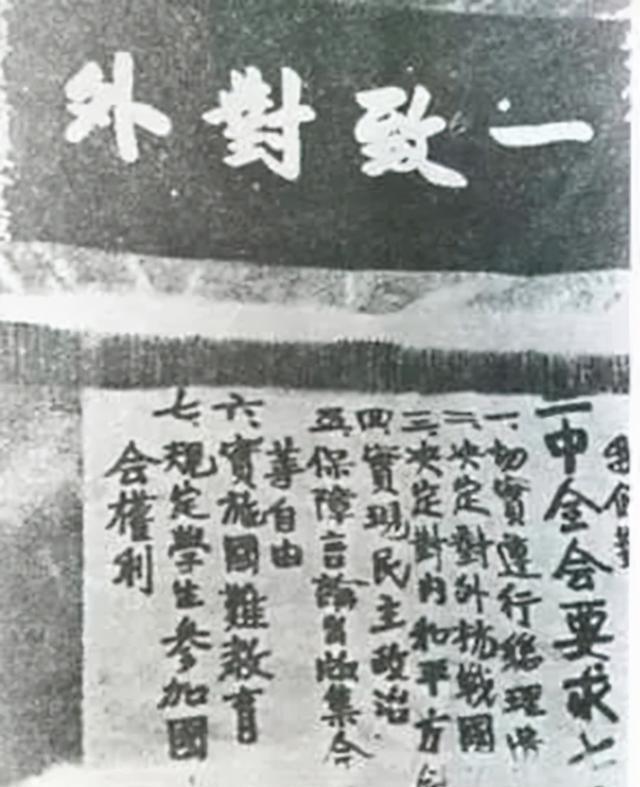 一致對外
中全会要求
一.切實遵行總理
二.决定對外抗戰國
三.决定對内和平方
四.實現民主政治
五.保障言論出版集会
等自由
六.實施國難教育
七.規定學生參加國
会權利